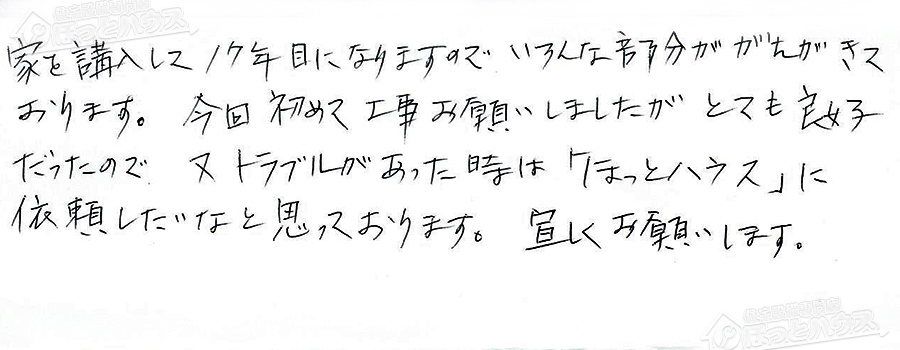 家を講入して17年目になりますので いろんな部分が がたがきて
おります。 今回 初めて 工事 お願いしましたが とても 良好
だったので 又 トラブルがあった時は 「ほっとハウス」に
依頼したいなと思っております。 宜しく お願いします。
ほっとハウス
ほっとハウス